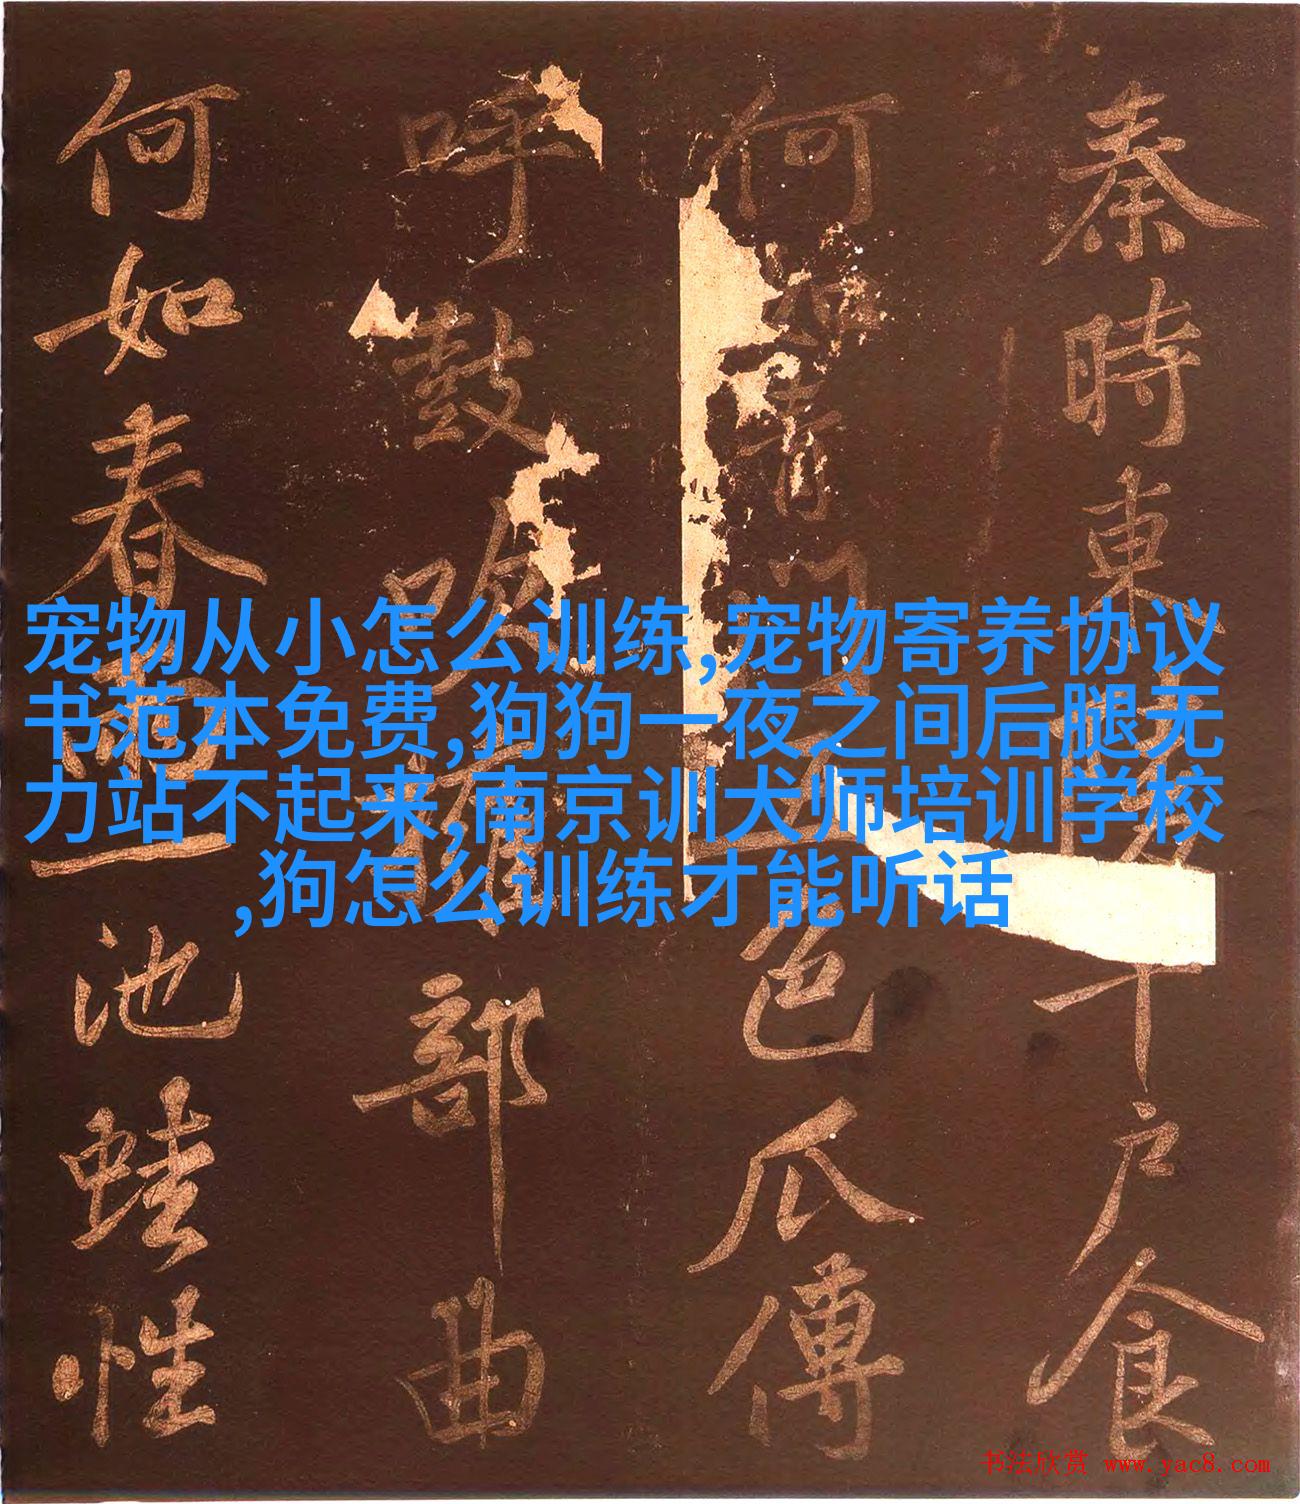 秦時東陵千戶食
何如青門五色瓜傳
呼鼓吹擁部曲
何如春雨池蛙性
宠物从小怎么训练,宠物寄养协议
书范本免费,狗狗一夜之间后腿无
力站不起来,南京训犬师培训学校
,狗怎么训练才能听话
书法欣赏 www.yac8.com